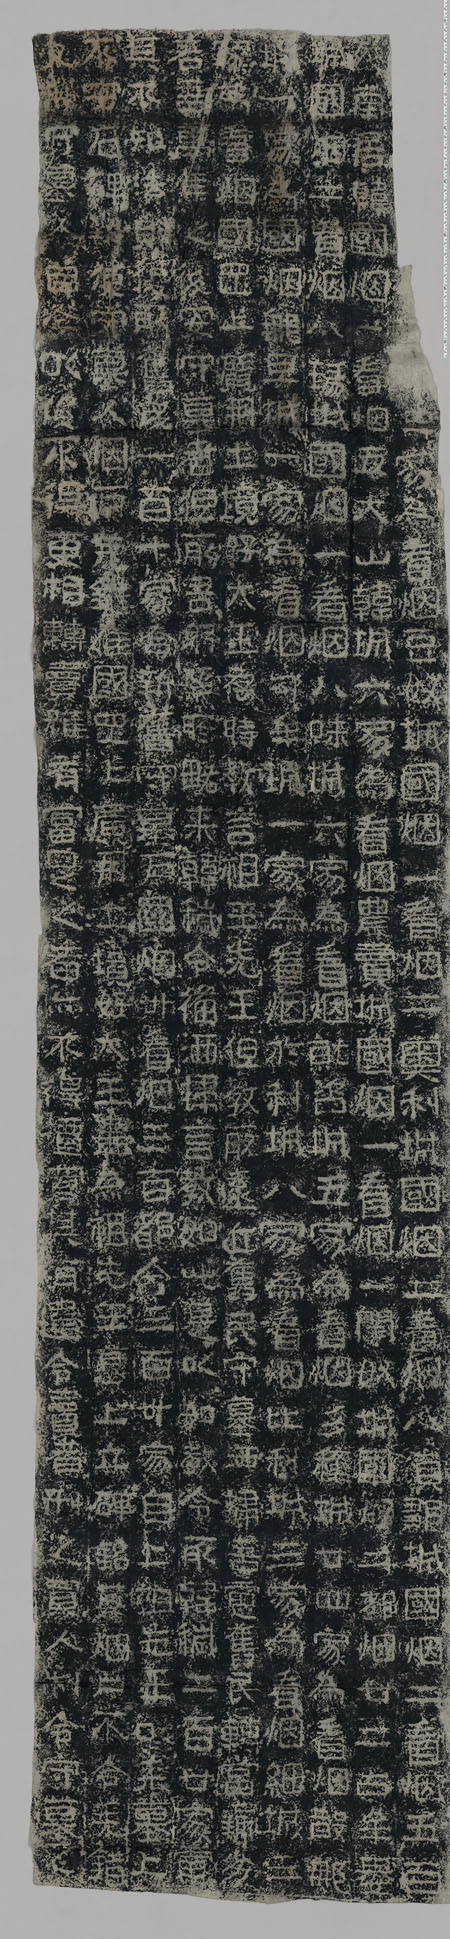 家爲看烟豆奴城國烟一看烟二奧利城國烟二看烟八須鄒城國烟二看烟五百
殘南居韓國烟一看烟五太山韓城六家爲看烟農賣城國烟一看烟七閏奴城國烟二看烟廿二古牟婁
城國烟二看烟八瑑城國烟一看烟八味城六家爲看烟就咨城五家爲看烟彡穰城廿四家爲看烟散那
城一家爲國烟那旦城一家爲看烟句牟城一家爲看烟於利城八家爲看烟比利城三家爲看烟細城三
家爲看烟國罡上廣開土境好太王存時教言祖王先王但教取遠近舊民守墓洒掃吾慮舊民轉當羸劣
若吾萬年之後安守墓者但取吾躬巡所略來韓穢令備洒掃言教如此是以如教令取韓穢二百廿家慮
其不知法則復取舊民一百十家合新舊守墓戶國烟卅看烟三百都合三百卅家自上祖先王以來墓上
不安石碑致使守墓人烟戶差錯唯國罡上廣開土境好太王盡爲祖先王墓上立碑銘其烟戶不令差錯
又制守墓人自今以後不得更相轉賣雖有富足之者亦不得擅買其有違令賣者刑之買人制令守墓之